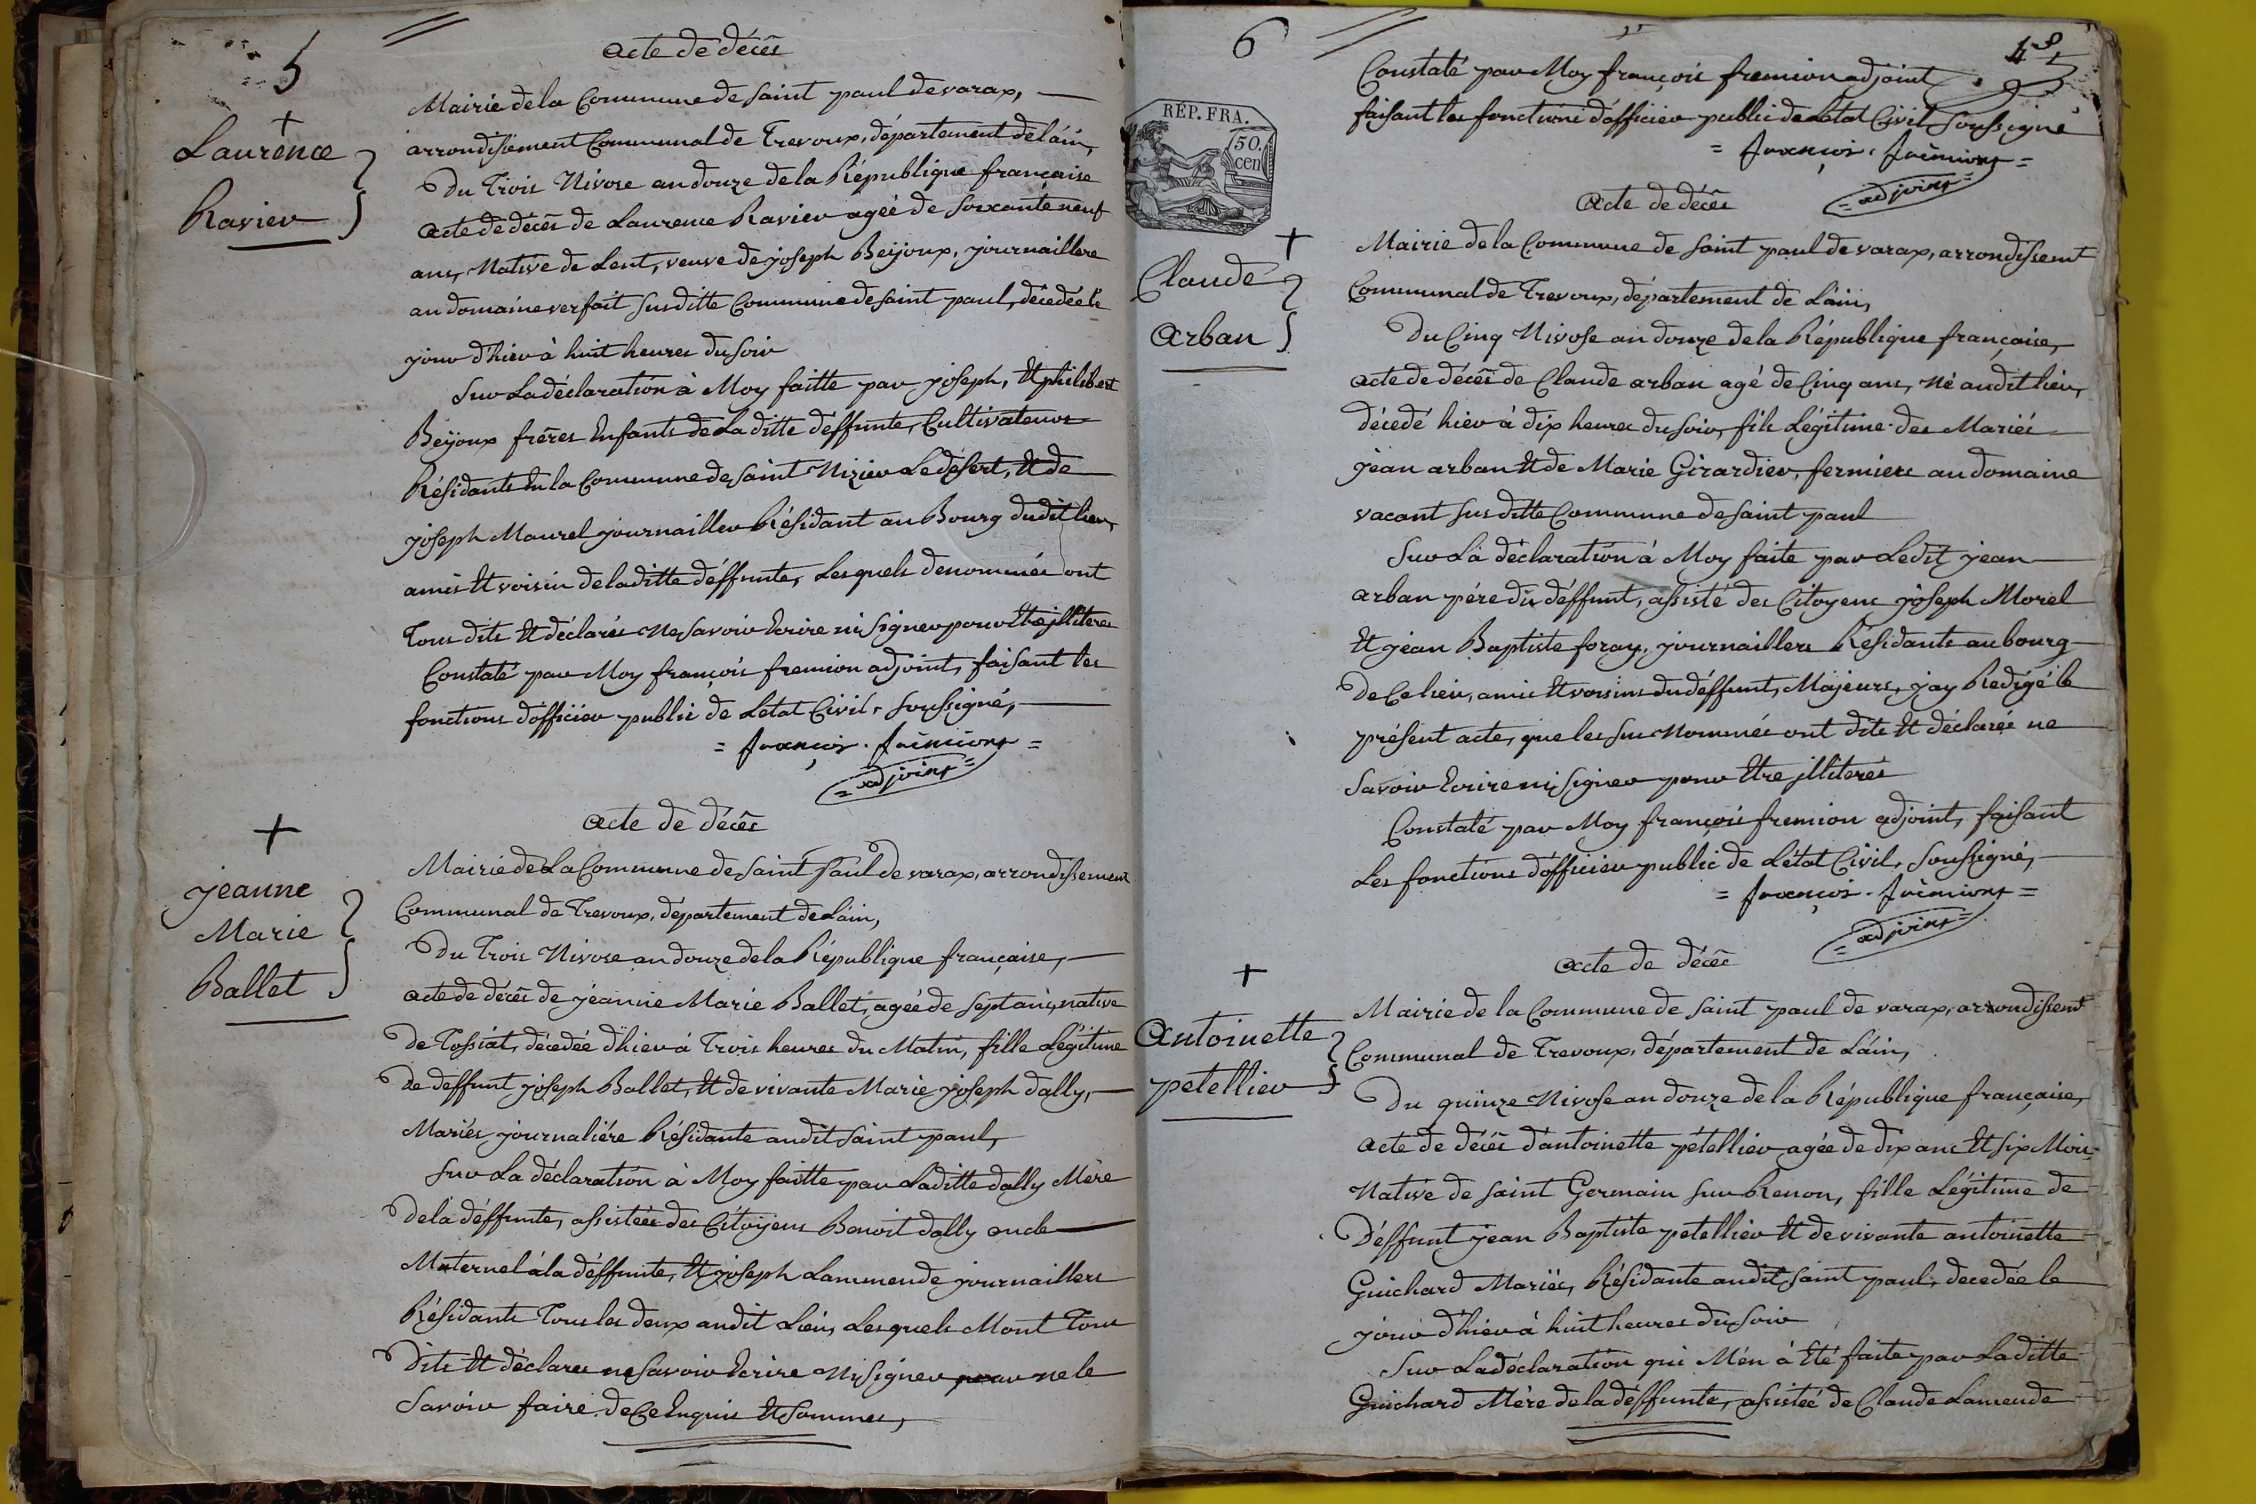 5
acte de décès
+
Laurence
Ravier
Mairie de la Commune de saint paul de varax,
arrondissement Communal de Trevoux, département de láin,
Du Trois Nivose an douze de la République française
acte de décès de Laurence Ravier agée de soixante neuf
ans, Native de Lent, veuve de joseph Beijoux, journaillere
au domaine verfait susditte Commune de saint paul, décedée le
jour d'hier à huit heures du soir
Sur La déclaration à Moy faitte par joseph, Et philibert
Beijoux frères Enfants de La ditte déffunte, Cultivateurs
Résidants En la Commune de saint Nizier Le désert, Et de
joseph Maurel journaillier Résidant au Bourg dudit lieu,
amis Et voisin de laditte déffunte, Lesquels denommés ont
Tous dits Et déclarés Ne savoir Ecrire ni signer pour Etre jlliterés
Constaté par Moy françois fremion adjoint, faisant les
fonctions d'officier public de Létat Civil, soussigné,
= françois . frèmiont =
= adjoint =
acte de décès
+
jeanne
Marie
Ballet
Mairie de La Commune de saint paul de varax, arrondissement
Communal de Trevoux, département de Láin,
Du Trois Nivose an douze de la République française,
acte de décès de jeanne Marie Ballet, agée de sept ans, native
de Tossiat, décedée d'hier à Trois heures du Matin, fille Légitime
de deffunt joseph Ballet, Et de vivante Marie joseph dally,
Mariés journaliére Résidante audit saint paul,
Sur La déclaration à Moy faitte par Laditte dally Mère
de la déffunte, assistée des Citoyens Benoit dally oncle
Maternel à la déffunte, Et joseph Lammende journailliers
Résidants Tous les deux audit Lieu, Lesquels M'ont Tous
Dits Et déclarés ne savoir Ecrire Ny signer pour ne le
savoir faire de Ce Enquis Et sommés,
6
Constaté par Moy françois fremion adjoint
faisant les fonctions d'officier public de Létat Civil soussigné
= françois . frèmiont =
= adjoint =
RÉP. FRA.
50.
cen
acte de décès
+
Claude
arban
Mairie de la Commune de saint paul de varax, arrondissemt
Communal de Trevoux, département de Láin,
Du Cinq Nivose an douze de la République française,
acte de décès de Claude arban agé de Cinq ans, Né audit lieu,
décedé hier à dix heures du soir, fils Légitime des Mariés
jean arban Et de Marie Girardier, fermiers au domaine
vacant susditte Commune de saint paul
Sur Là déclaration à Moy faite par Ledit jean
arban pére du déffunt, assisté des Citoyens joseph Morel
Et jean Baptiste foray, journailliers Résidants au bourg
de Ce lieu, amis Et voisins du déffunt, Majeurs, j'ay Redigé le
présent acte, que les sus Nommés ont dits Et déclarés ne
savoir Ecrire ni signer pour Etre jlliterés
Constaté par Moy françois fremion adjoint, faisant
Les fonctions d'officier public de Létat Civil, soussigné,
= françois . frèmiont =
= adjoint =
acte de décès
+
antoinette
petellier
Mairie de la Commune de saint paul de varax, arrondissemt
Communal de Trevoux, département de Láin,
Du quinze Nivose an douze de la République française,
acte de décès d'antoinette pételliev agée de dix ans Et six Mois
Native de saint Germain sur Renon, fille Légitime de
Déffunt jean Baptiste petellier Et de vivante antoinette
Guichard Mariés, Résidante audit saint paul, decedée le
jour d'hier à huit heures du soir
Sur La déclaration qui M'en à Eté faite par Laditte
Guichard Mère de la déffunte, assistée de Claude Lamende